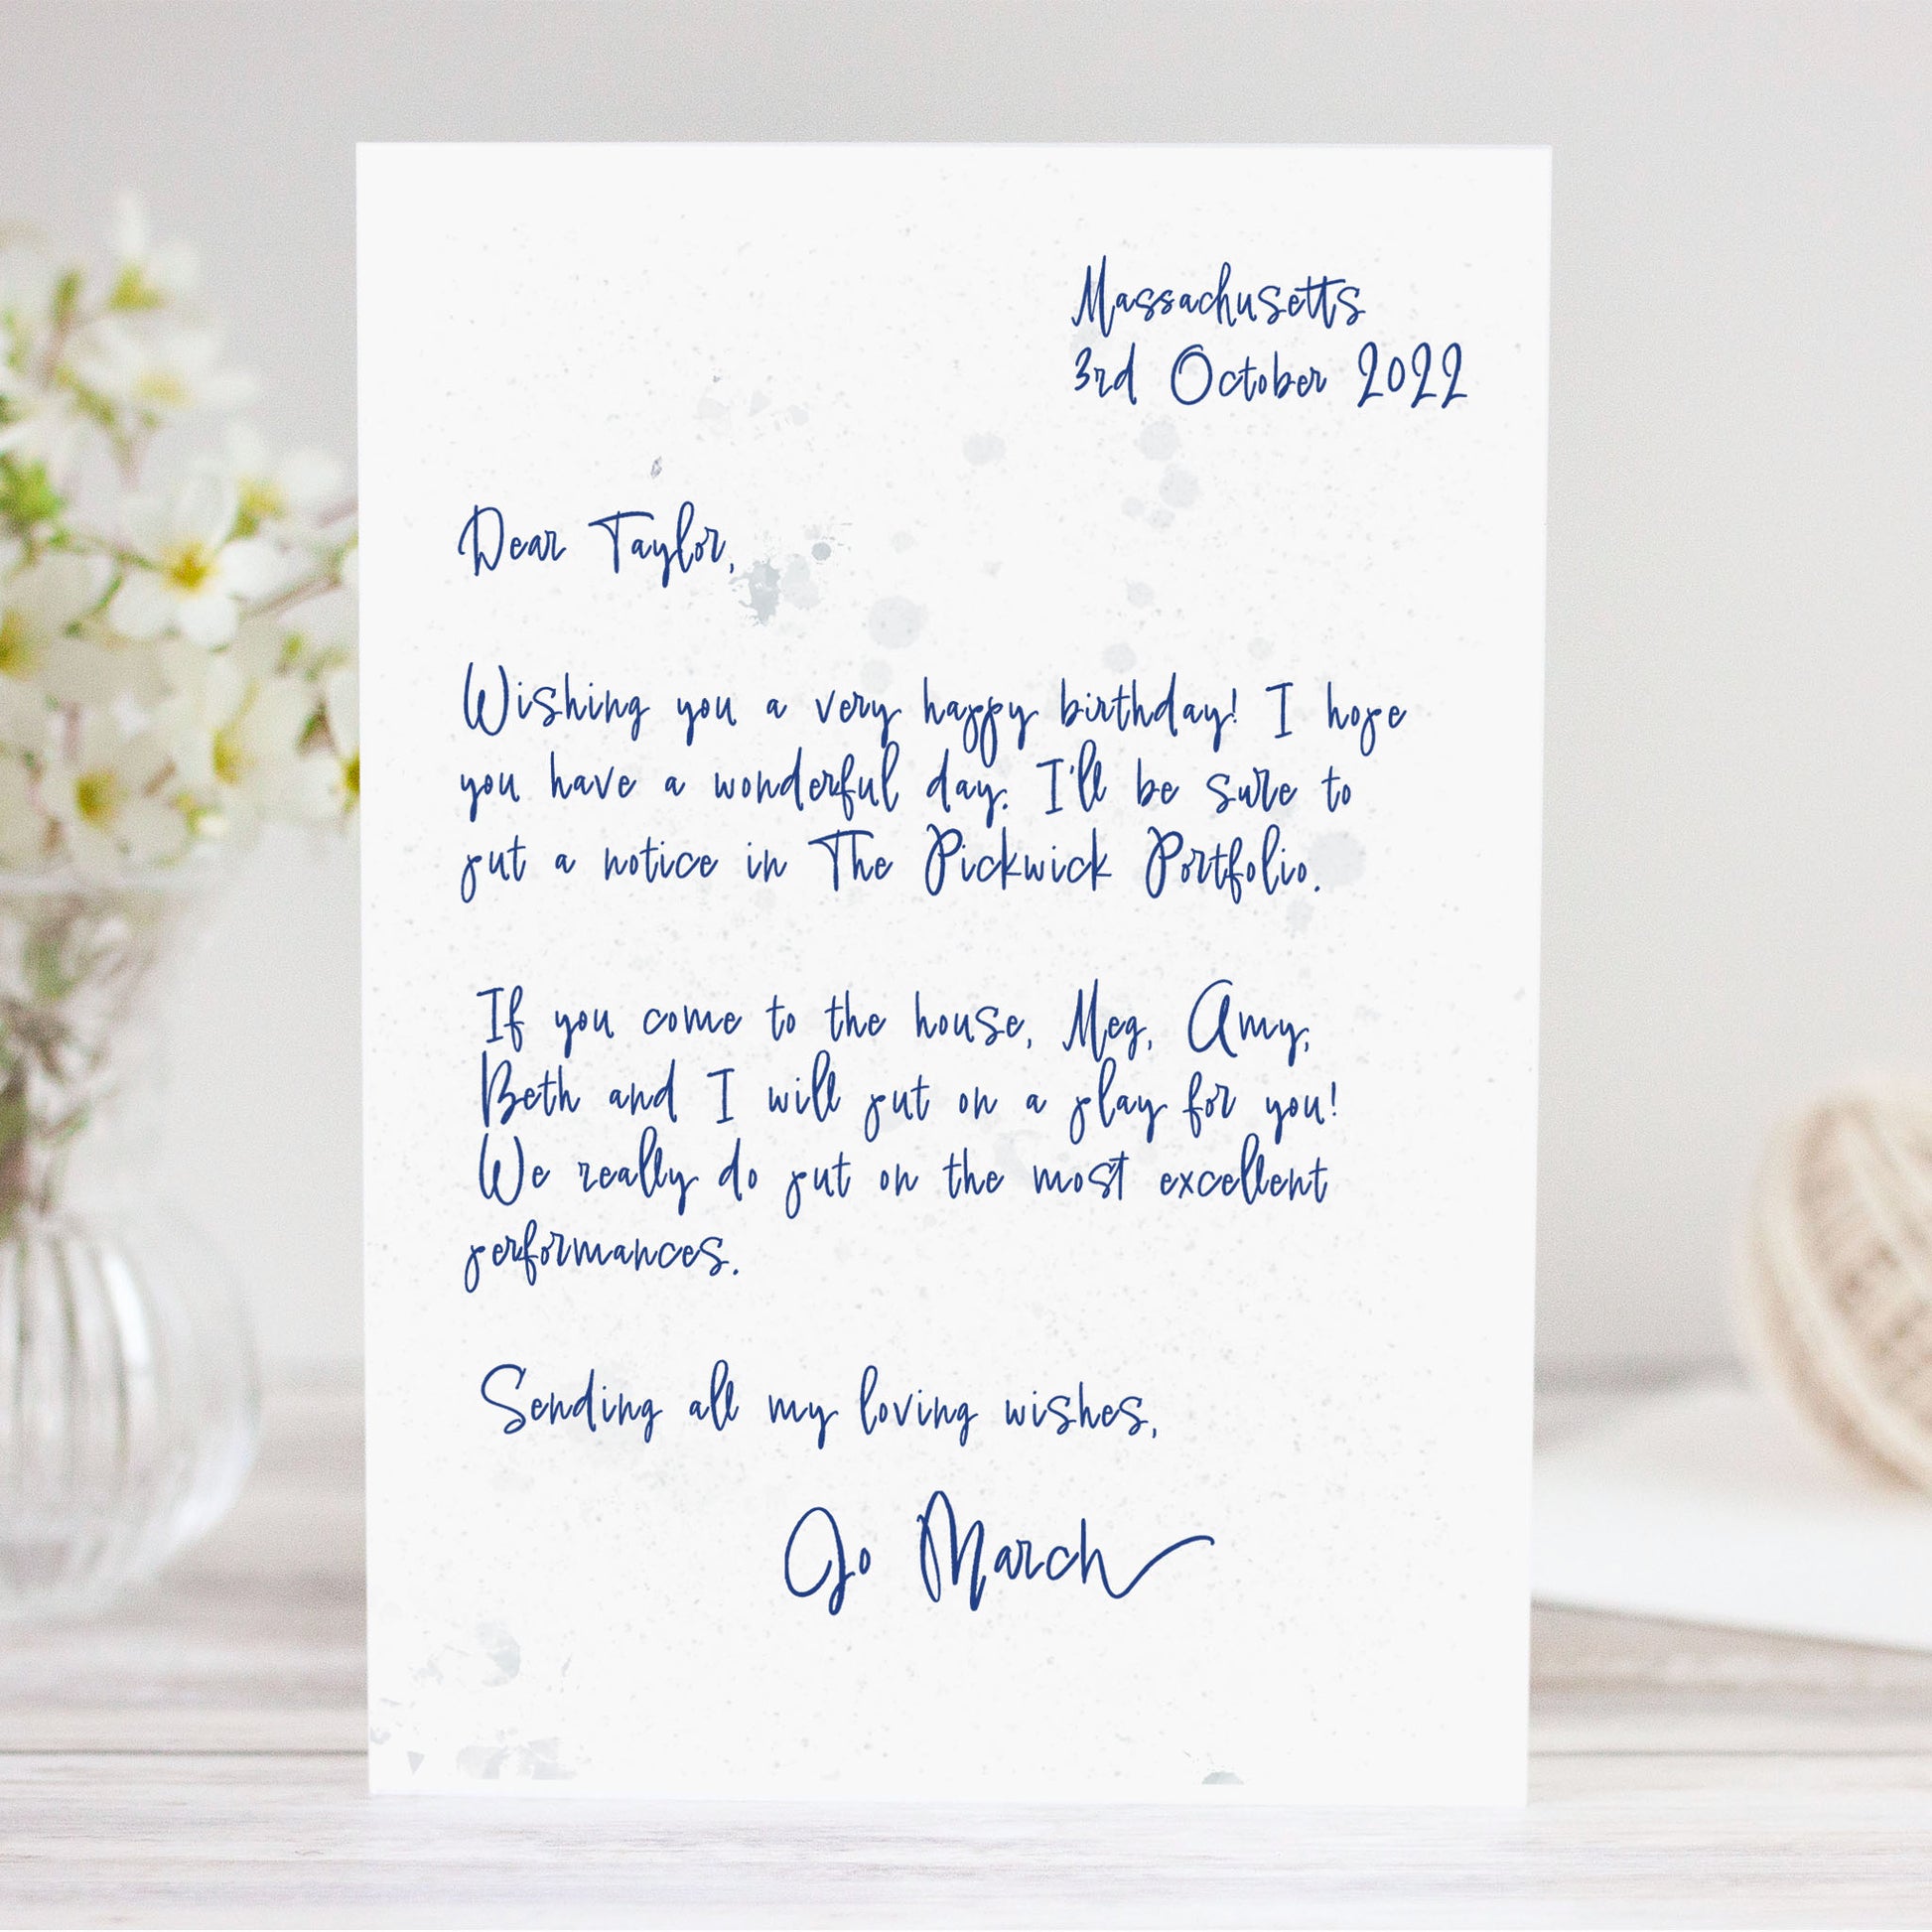 Massachusetts
3rd October 2022
Dear Taylor,
Wishing you a very happy birthday! I hope
you have a wonderful day. I'll be sure to
put a notice in The Pickwick Portfolio.
If you come to the house, Meg, Amy,
Beth and I will put on a play for you!
We really do put on the most excellent
performances.
Sending all my loving wishes,
Jo March